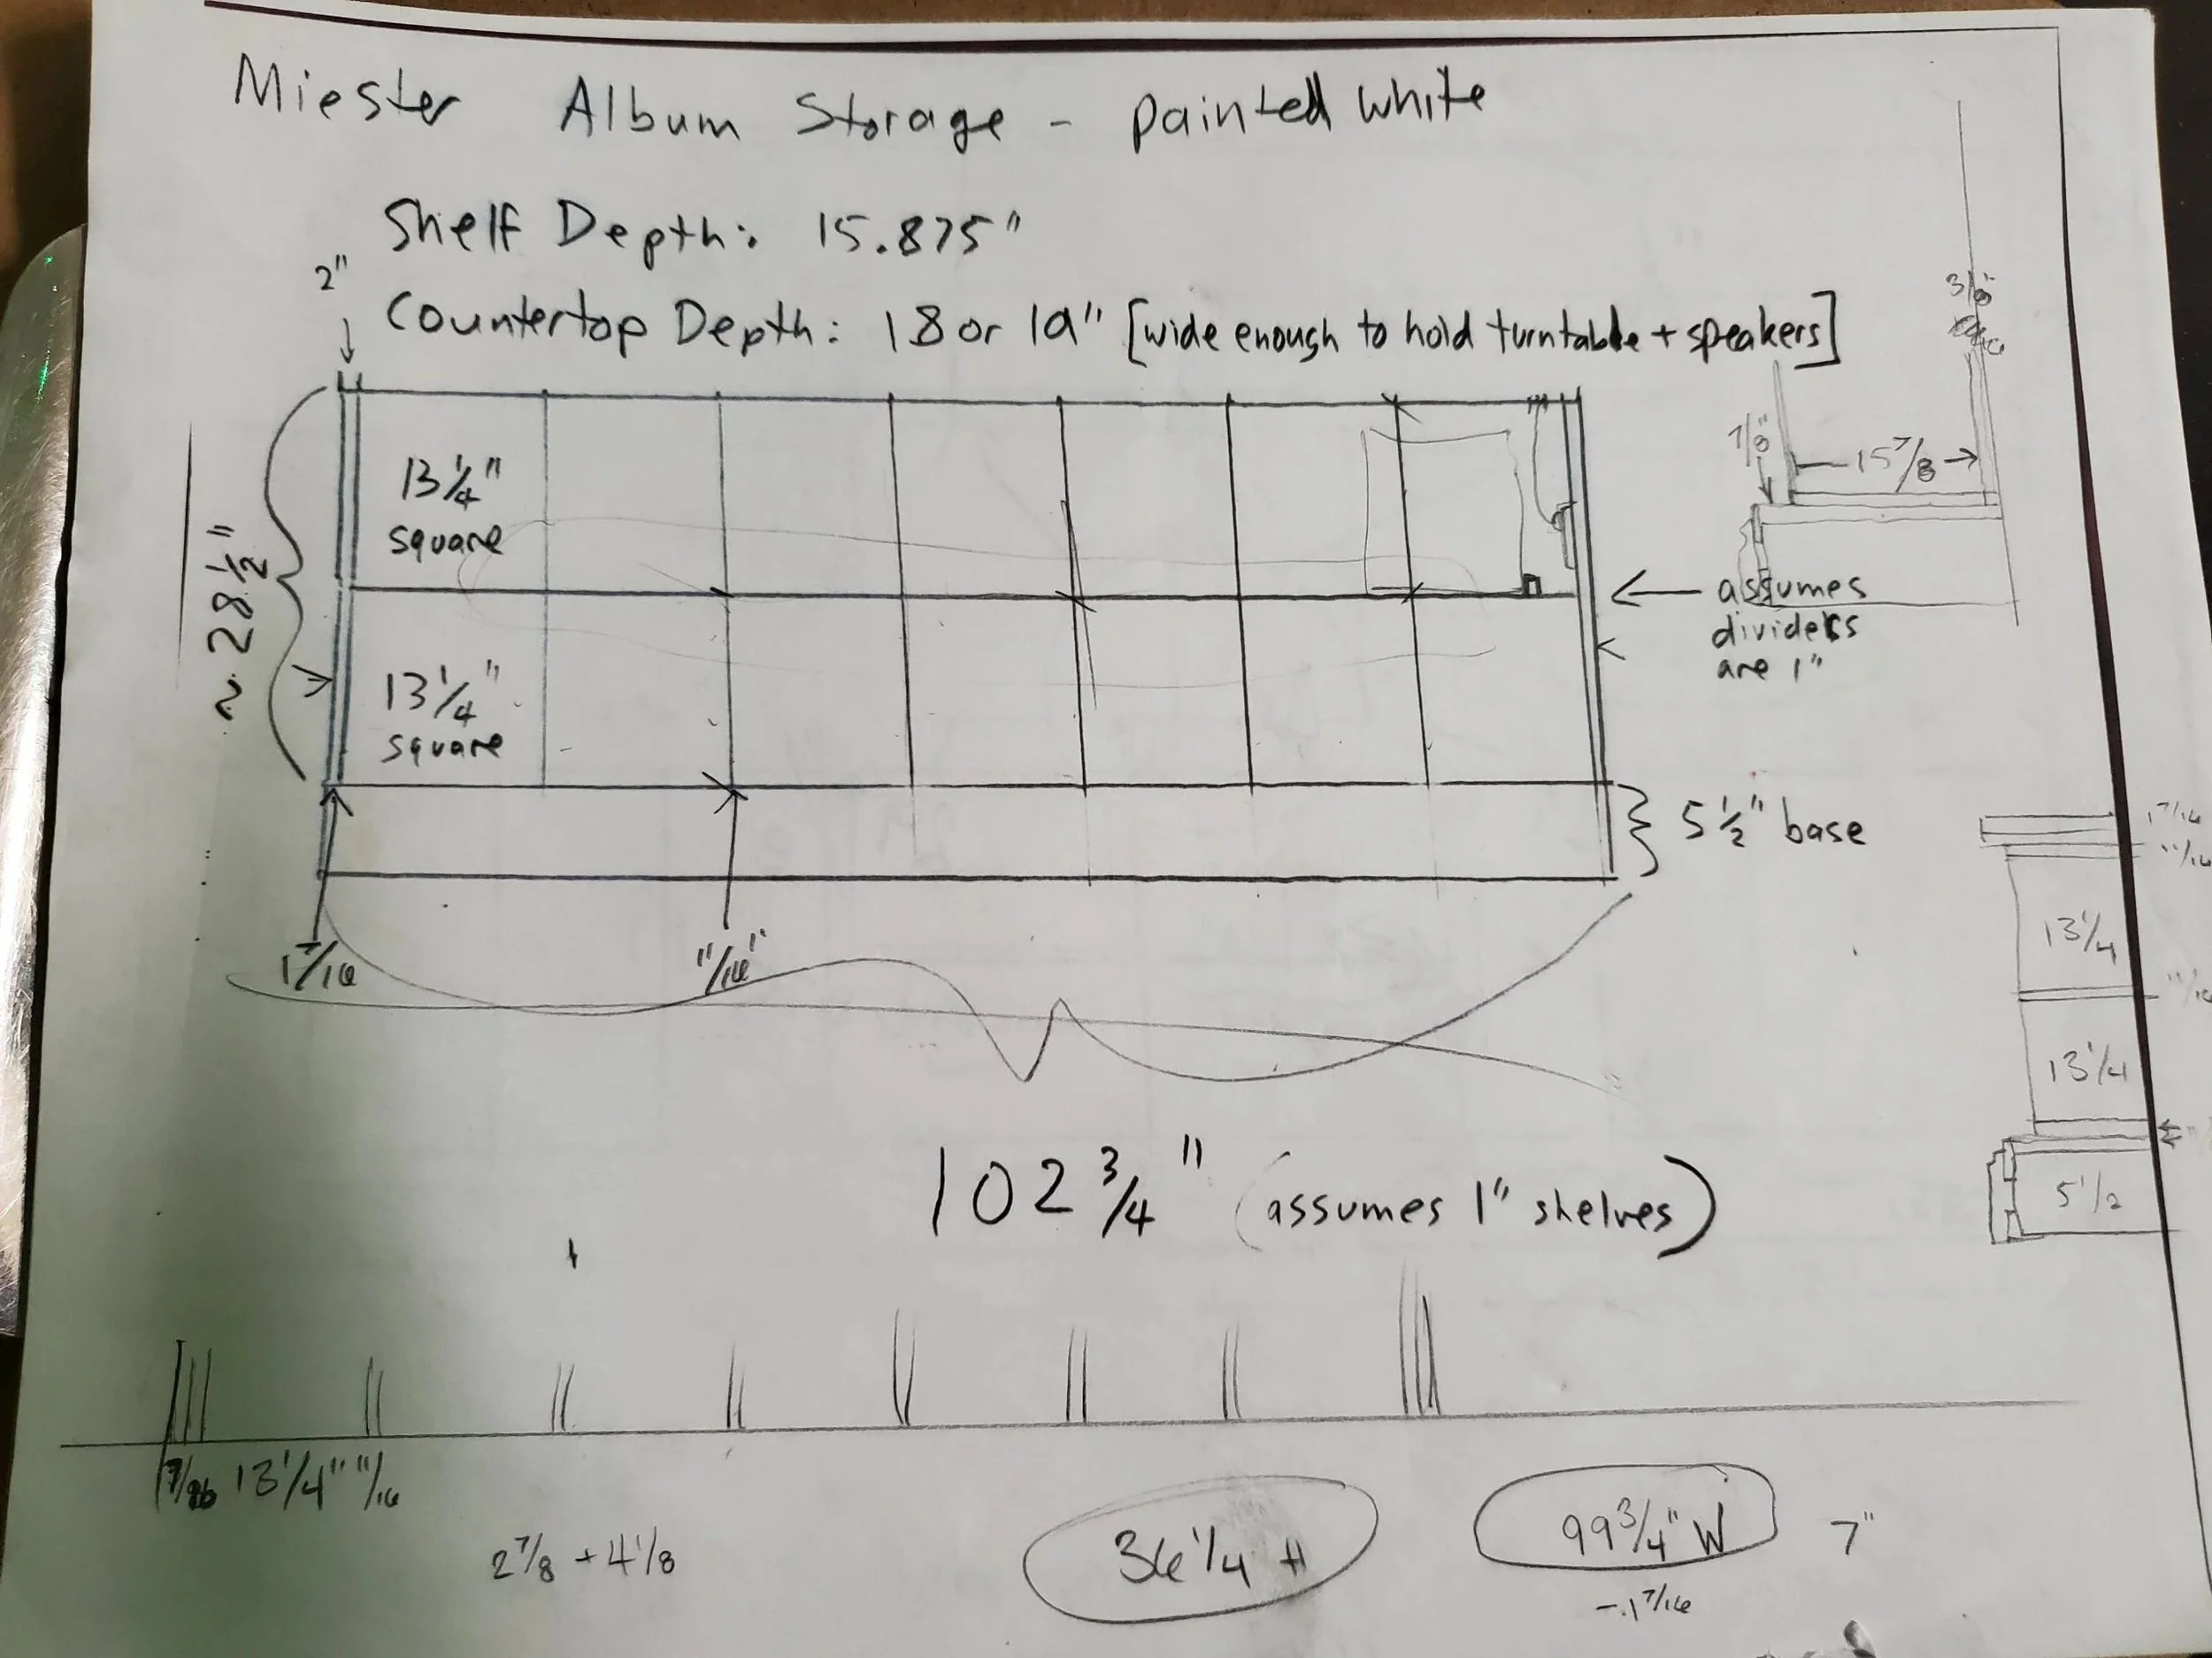 Miester Album Storage - painted white
Shelf Depth: 15.875"
2"
Countertop Depth: 18 or 19" [wide enough to hold turntable + speakers]
3/8"
7/8"
15 7/8
13 1/4"
square
~ 28 1/2"
assumes
dividers
are 1"
13 1/4"
square
5 1/2" base
1 7/16
11/16
13 1/4
1 7/16
11/16"
11/16
13 1/4
102 3/4" (assumes 1" shelves)
5 1/2
13 1/4" 11/16
2 7/8 + 4 1/8
36 1/4 H
99 3/4" W
7"
- 1 7/16